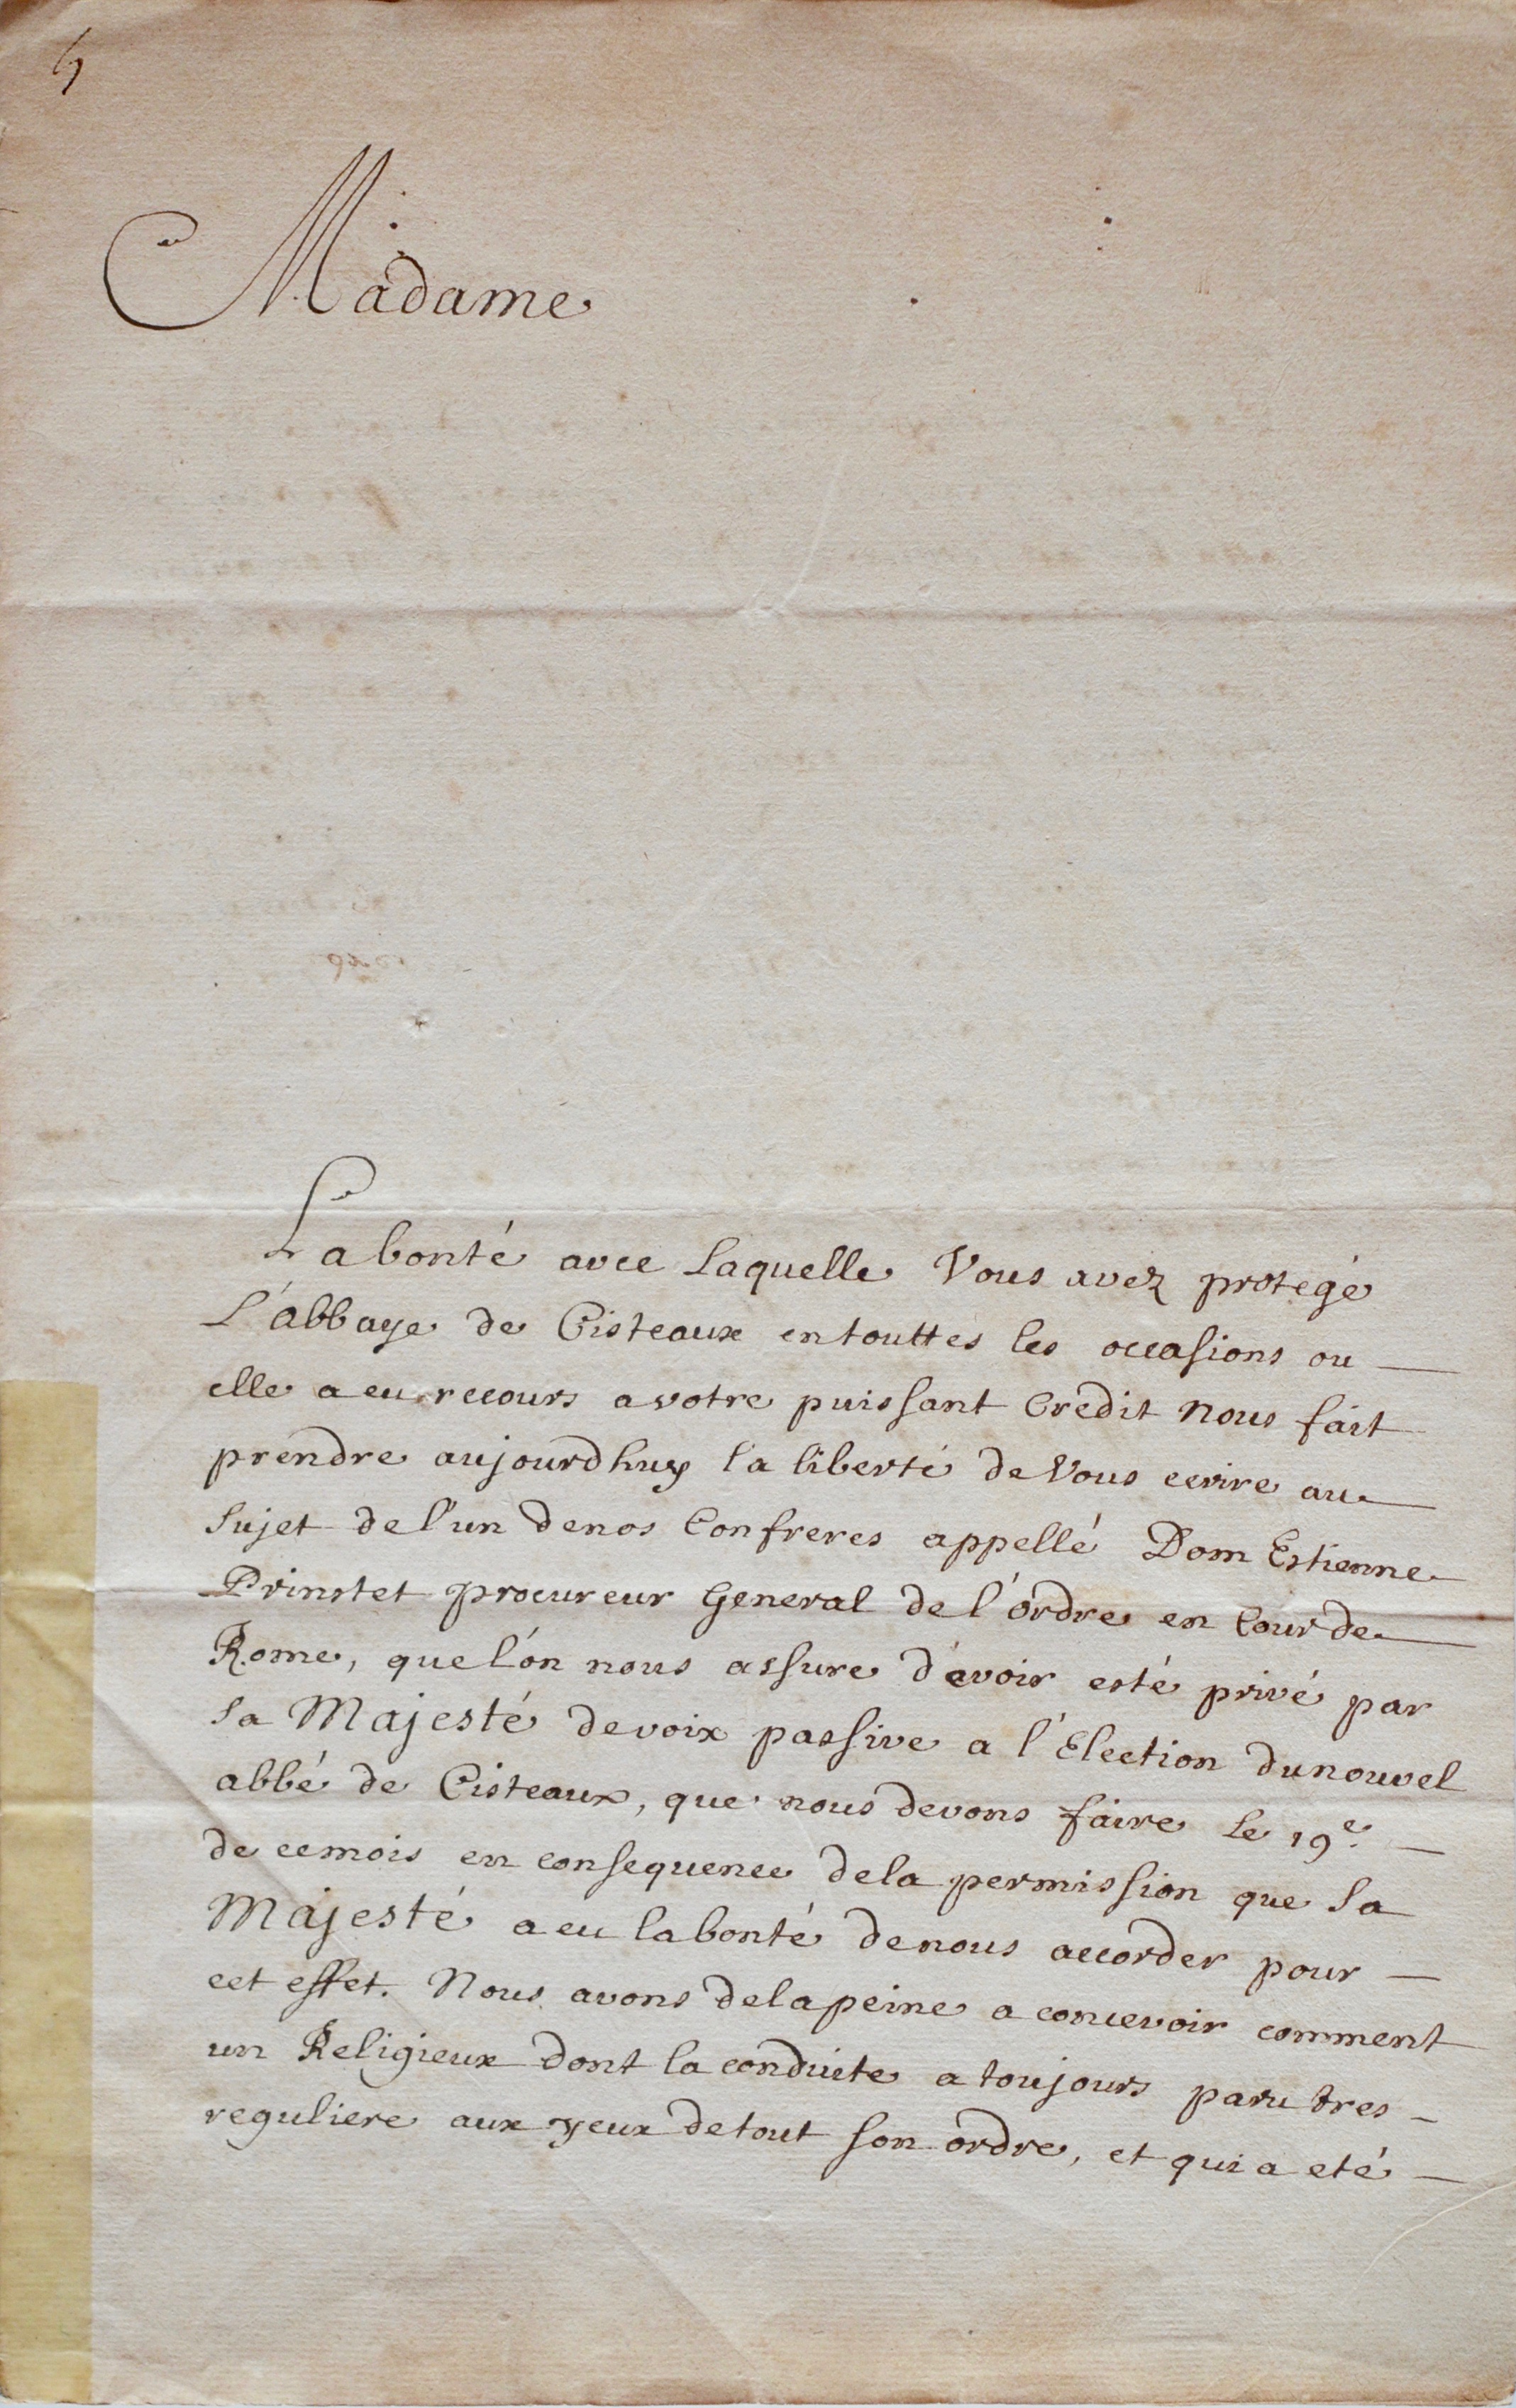 Madame
La bonté avec laquelle Vous avez protegé
L'abbaye de Cisteaux en touttes les occasions ou
elle a eu recours a votre puissant Credit nous fait
prendre aujourdhuy la liberté de Vous ecrire au
sujet de l'un de nos Confreres appellé Dom Estienne
Prinstet procureur General de l'ordre en Cour de
Rome, que l'on nous assure d'avoir esté privé par
sa Majesté de voix passive a l'Election du nouvel
abbé de Cisteaux, que nous devons faire le 19e.
de ce mois en consequence de la permission que sa
Majesté a eu la bonté de nous accorder pour
cet effet. Nous avons de la peine a concevoir comment
un Religieux dont la conduite a toujours paru tres
reguliere aux yeux de tout son ordre, et qui a eté